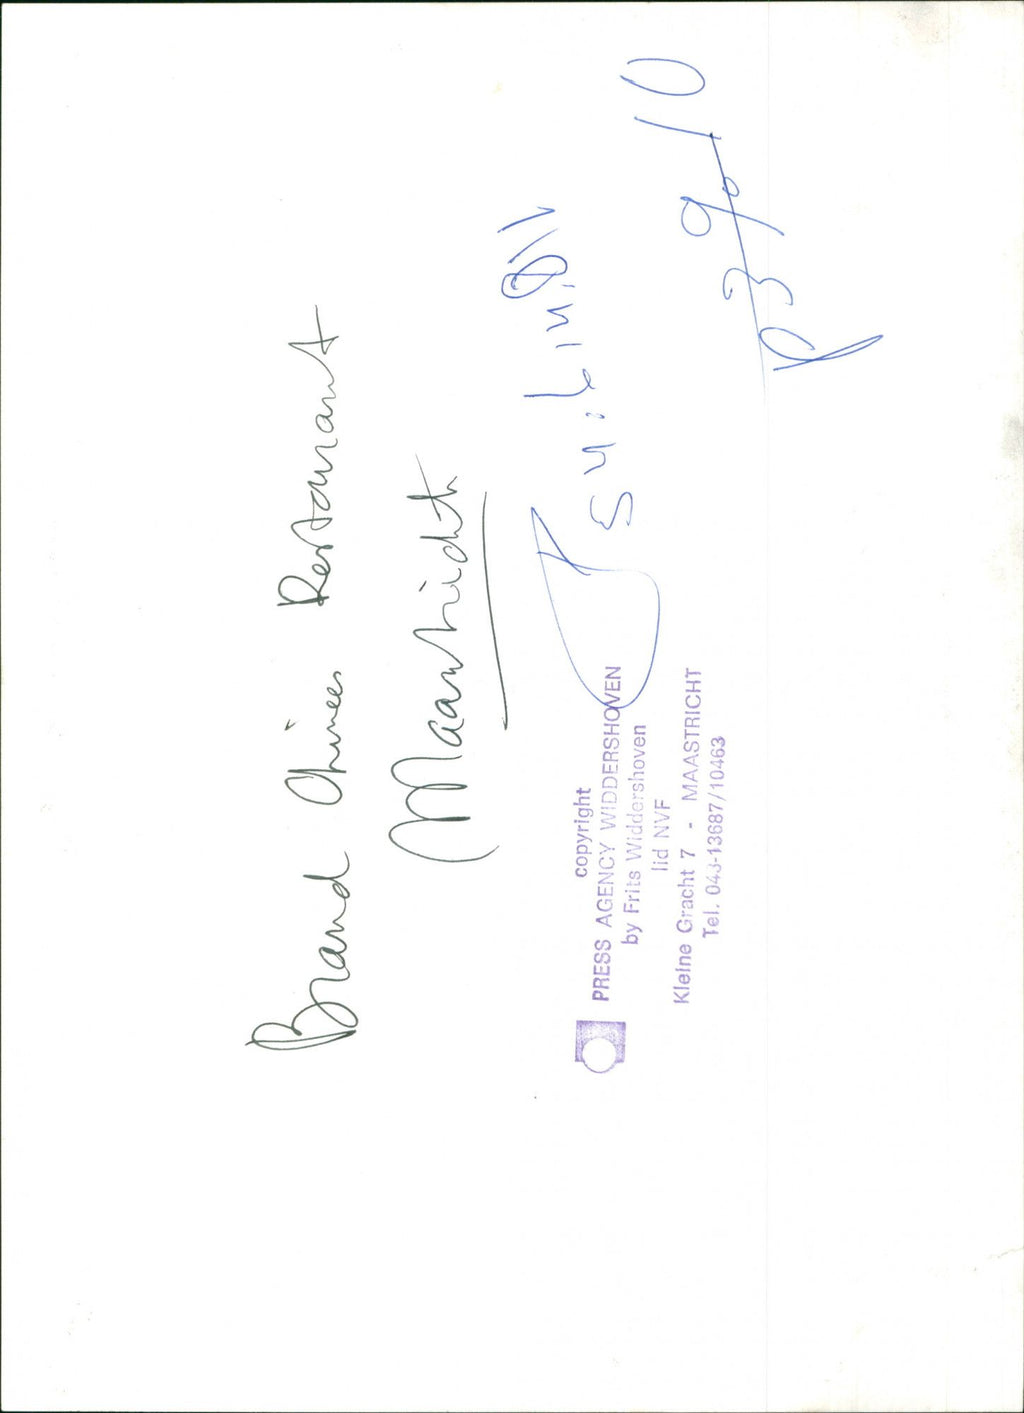 Brand Chinees Restaurant
Maastricht
copyright
PRESS AGENCY WIDDERSHOVEN
by Frits Widdershoven
lid NVF
Kleine Gracht 7 - MAASTRICHT
Tel. 043-13687/10463